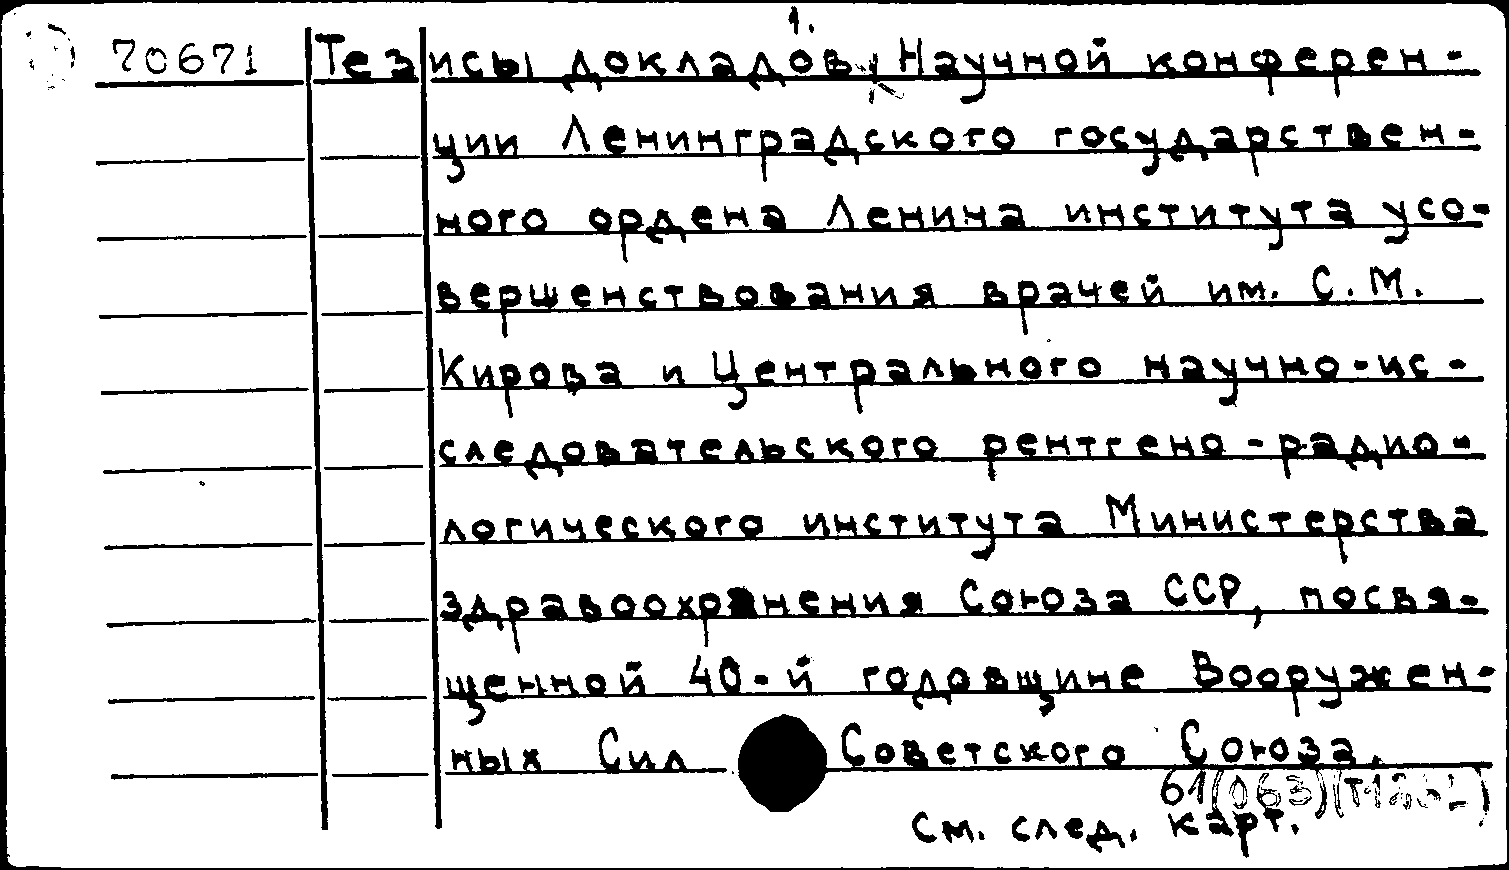 1.
70671 Тезисы докладов Научной конферен-
ции Ленинградского государствен-
ного ордена Ленина института усо-
вершенствования врачей им. С.М.
Кирова и Центрального научно-ис-
следовательского рентгено-радио-
логического института Министерства
здравоохранения Союза ССР, посвя-
щенной 40-й годовщине Вооружен-
ных Сил Советского Союза.
61(063)
см. след. карт.